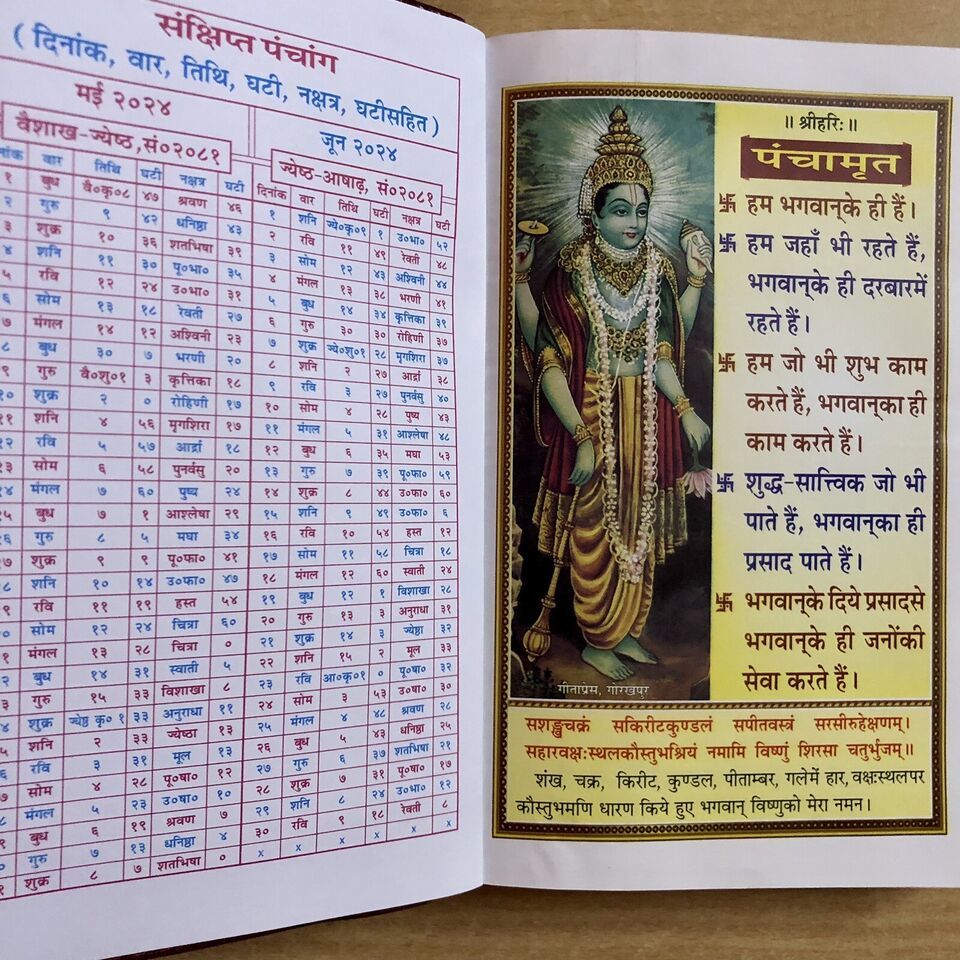 संक्षिप्त पंचांग
( दिनांक, वार, तिथि, घटी, नक्षत्र, घटीसहित )
मई २०२४
वैशाख-ज्येष्ठ,सं०२०८१
वार तिथि घटी नक्षत्र घटी
१ बुध वै०कृ०८ ४७ श्रवण ४६
२ गुरु ९ ४२ धनिष्ठा ४३
३ शुक्र १० ३६ शतभिषा ३९
४ शनि ११ ३० पू०भा० ३५
५ रवि १२ २४ उ०भा० ३१
६ सोम १३ १८ रेवती २७
७ मंगल १४ १२ अश्विनी २३
८ बुध ३० ७ भरणी २०
९ गुरु वै०शु०१ ३ कृत्तिका १८
१० शुक्र २ ० रोहिणी १७
११ शनि ४ ५६ मृगशिरा १७
१२ रवि ५ ५७ आर्द्रा १८
१३ सोम ६ ५८ पुनर्वसु २०
१४ मंगल ७ ६० पुष्य २४
१५ बुध ७ १ आश्लेषा २९
१६ गुरु ८ ५ मघा ३४
१७ शुक्र ९ ९ पू०फा० ४१
१८ शनि १० १४ उ०फा० ४७
१९ रवि ११ १९ हस्त ५४
सोम १२ २४ चित्रा ६०
मंगल १३ २८ चित्रा ०
बुध १४ ३१ स्वाती ५
गुरु १५ ३३ विशाखा ८
शुक्र ज्येष्ठ कृ० १ ३३ अनुराधा ११
शनि २ ३३ ज्येष्ठा १३
रवि ३ ३१ मूल १३
सोम ४ २८ पू०षा० १२
मंगल ५ २३ उ०षा० १०
बुध ६ १९ श्रवण ७
गुरु ७ १३ धनिष्ठा ४
शुक्र ८ ७ शतभिषा ०
जून २०२४
ज्येष्ठ-आषाढ़, सं०२०८१
दिनांक वार तिथि घटी नक्षत्र घटी
१ शनि ज्ये०कृ०९ १ उ०भा० ५२
२ रवि ११ ४९ रेवती ४८
३ सोम १२ ४३ अश्विनी ४४
४ मंगल १३ ३८ भरणी ४१
५ बुध १४ ३४ कृत्तिका ३९
६ गुरु ३० ३० रोहिणी ३७
७ शुक्र ज्ये०शु०१ २८ मृगशिरा ३७
८ शनि २ २७ आर्द्रा ३८
९ रवि ३ २७ पुनर्वसु ४०
१० सोम ४ २८ पुष्य ४३
११ मंगल ५ ३१ आश्लेषा ४८
१२ बुध ६ ३५ मघा ५३
१३ गुरु ७ ३९ पू०फा० ५९
१४ शुक्र ८ ४४ उ०फा० ६०
१५ शनि ९ ४९ उ०फा० ६
१६ रवि १० ५४ हस्त १२
१७ सोम ११ ५८ चित्रा १८
१८ मंगल १२ ६० स्वाती २४
१९ बुध १२ १ विशाखा २८
२० गुरु १३ ३ अनुराधा ३१
२१ शुक्र १४ ३ ज्येष्ठा ३२
२२ शनि १५ २ मूल ३३
२३ रवि आ०कृ०१ ० पू०षा० ३२
२४ सोम ३ ५३ उ०षा० ३०
२५ मंगल ४ ४८ श्रवण २८
२६ बुध ५ ४३ धनिष्ठा २५
२७ गुरु ६ ३७ शतभिषा २१
२८ शुक्र ७ ३१ पू०भा० १७
२९ शनि ८ २४ उ०भा० १२
३० रवि ९ १८ रेवती ८
x x x x x x
॥ श्रीहरि: ॥
पंचामृत
卐 हम भगवान्‌के ही हैं।
卐 हम जहाँ भी रहते हैं,
भगवान्‌के ही दरबारमें
रहते हैं।
卐 हम जो भी शुभ काम
करते हैं, भगवान्‌का ही
काम करते हैं।
卐 शुद्ध-सात्त्विक जो भी
पाते हैं, भगवान्‌का ही
प्रसाद पाते हैं।
卐 भगवान्‌के दिये प्रसादसे
भगवान्‌के ही जनोंकी
सेवा करते हैं।
गीताप्रेस, गोरखपुर
सशङ्खचक्रं सकिरीटकुण्डलं सपीतवस्त्रं सरसीरुहेक्षणम्।
सहारवक्ष:स्थलकौस्तुभश्रियं नमामि विष्णुं शिरसा चतुर्भुजम्॥
शंख, चक्र, किरीट, कुण्डल, पीताम्बर, गलेमें हार, वक्ष:स्थलपर
कौस्तुभमणि धारण किये हुए भगवान् विष्णुको मेरा नमन।